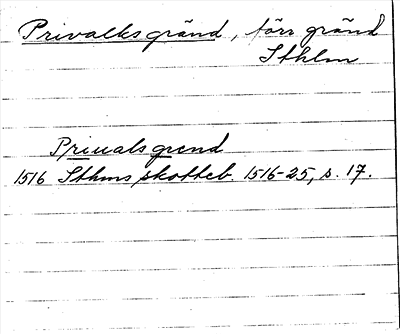 Privalksgränd, förr gränd
Sthlm
Priualsgrend
1516 Sthms skotteb. 1516-25, s. 17.